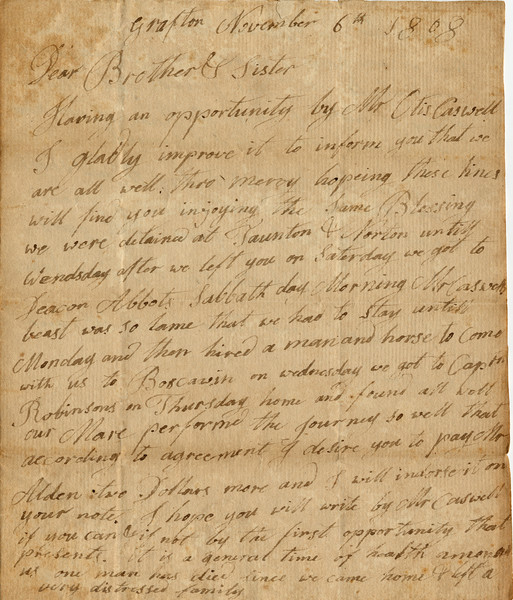 Grafton November 6th 1808
Dear Brother & Sister
Having an opportunity by Mr Otis Caswell
I gladly improve it to inform you that we
are all well. thro mercy hopeing these lines
will find you injoying the same Blessing
we were detained at Taunton & Norton untill
Wendsday after we left you on Saturday we got to
Deacon Abbots Sabbath day Morning Mr Caswells
beast was so lame that we had to stay untill
Monday and then hired a man and horse to Come
with us to Boscawin on wednesday we got to Captn
Robinsons on Thursday home and found all well
our Mare performd the journey so well that
according to agreement I desire you to pay Mr
Alden two Dollars more and I will indorse it on
your note. I hope you will write by Mr Caswell
if you can & if not by the first opportunity that
present. It is a general time of health amongst
us one man has died since we came home & left a
very distressed family